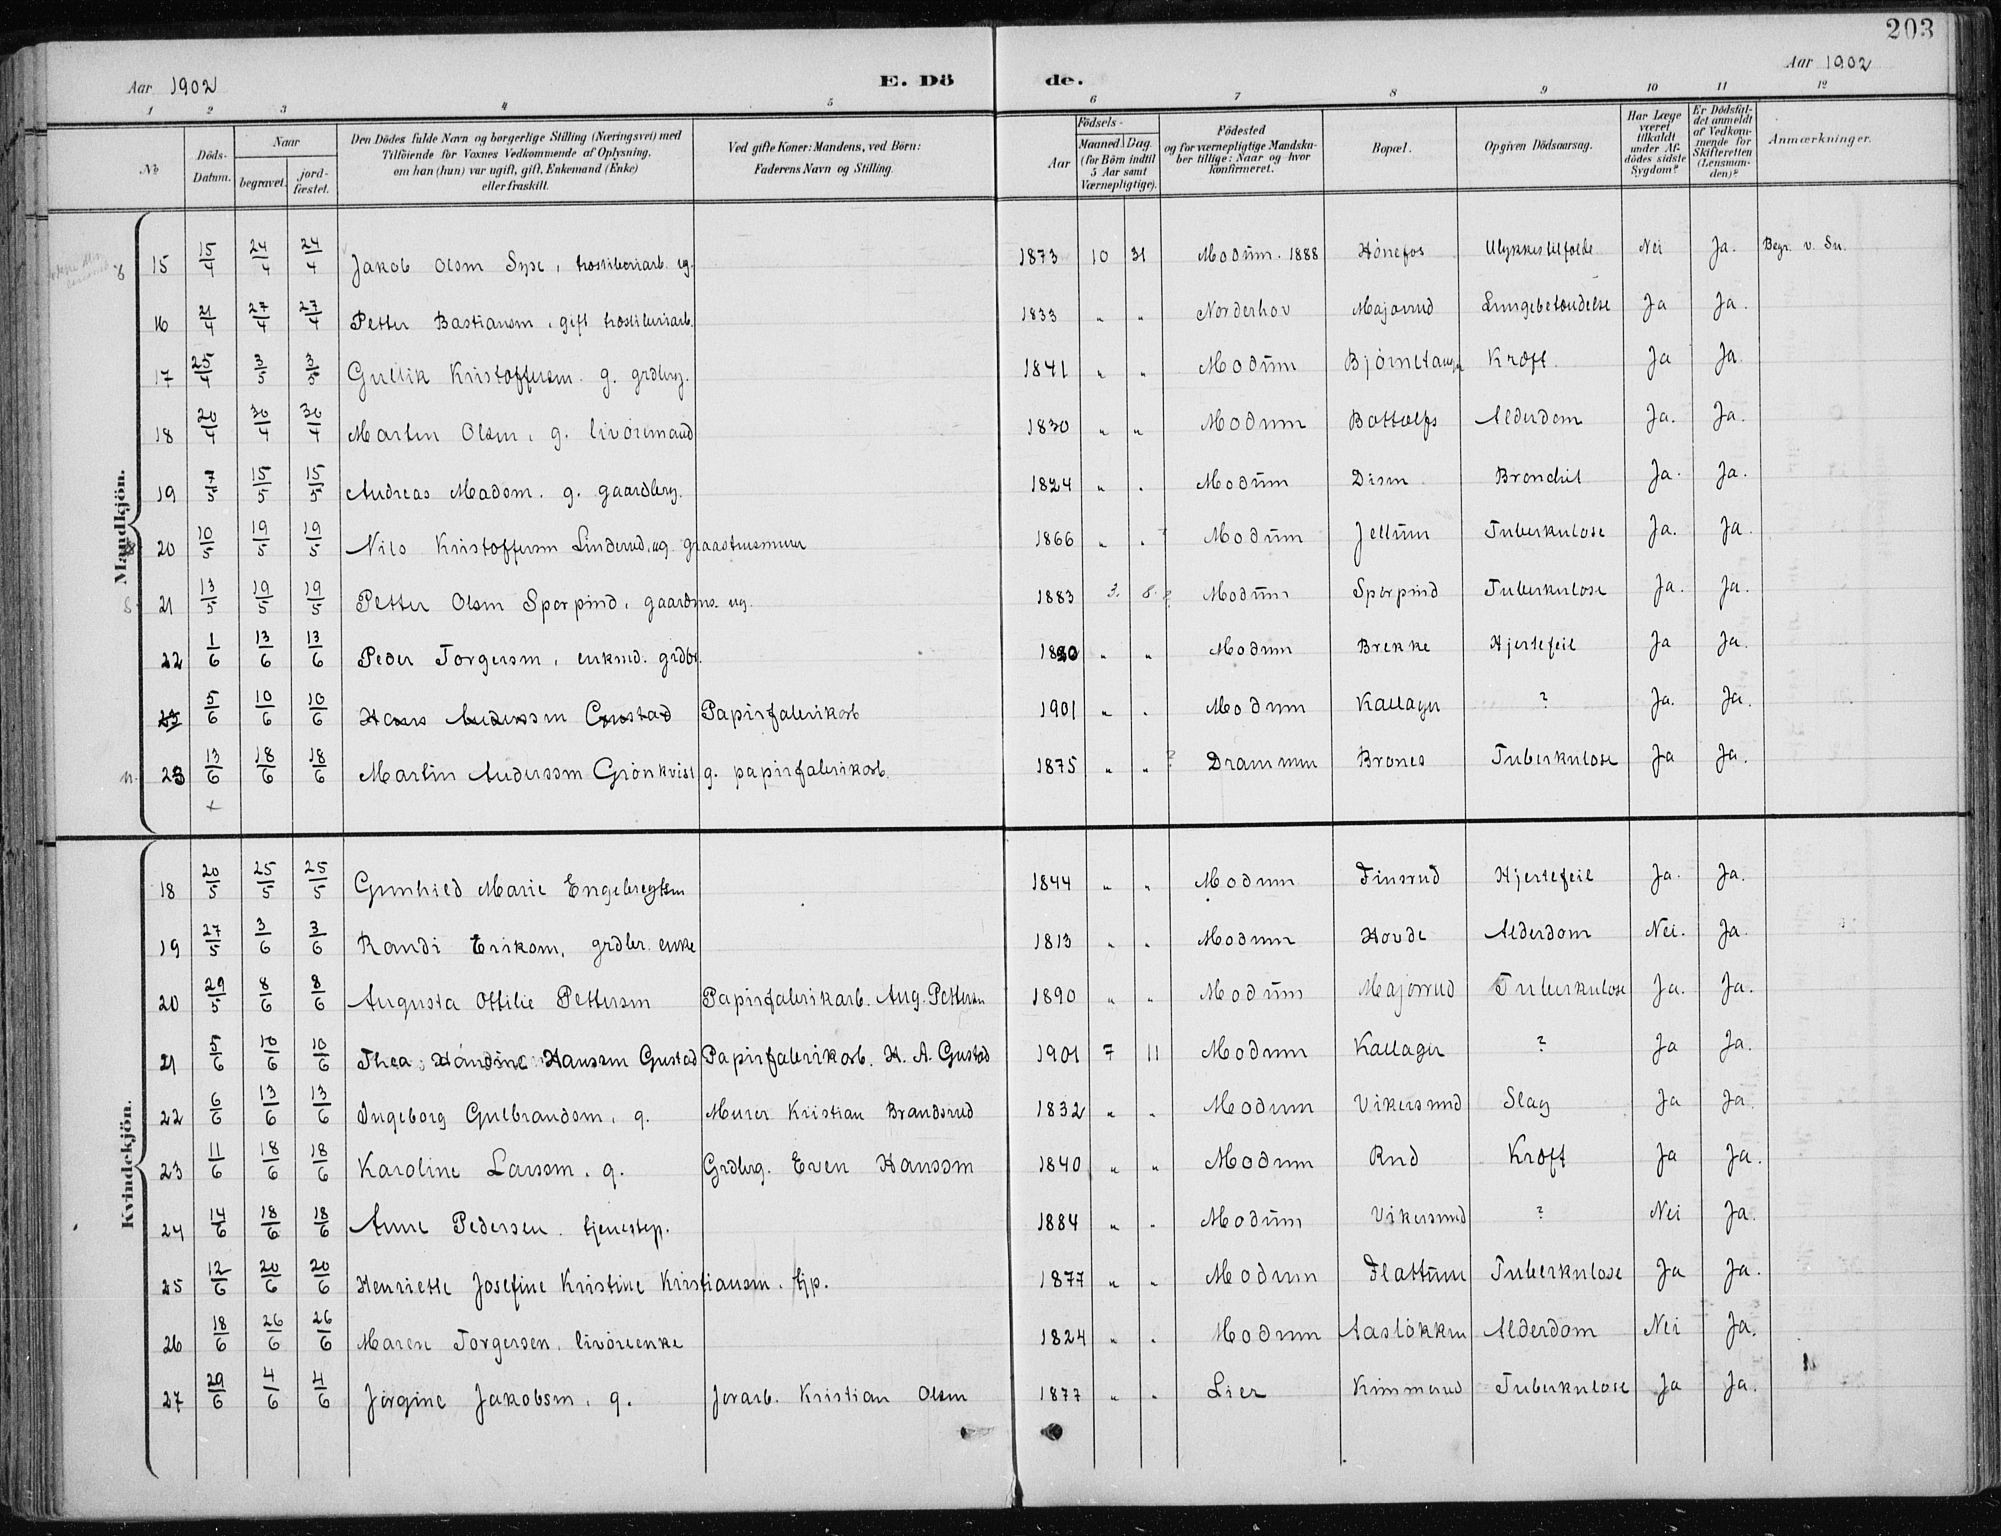 203
Aar 1902
E. Dö de.
Aar 1902
1 2 3 4 5 6 7 8 9 10 11 12
No
Döds-Datum.
Naar
begravet.
jord-fæstet.
Den Dödes fulde Navn og borgerlige Stilling (Næringsvei) med
Tilföiende for Voxnes Vedkommende af Oplysning.
om han (hun) var ugift, gift, Enkemand (Enke)
eller fraskilt.
Ved gifte Koner: Mandens, ved Börn:
Faderens Navn og Stilling.
Födsels-
Aar
Maaned. Dag.
(for Börn indtil
5 Aar samt
Værnepligtige).
Födested
og for værnepligtige Mandska-
ber tillige: Naar og hvor
konfirmeret.
Bopæl.
Opgiven Dödsaarsag.
Har Læge
været
tilkaldt
under Af-
dödes sidste
Sygdom?
Er Dödsfal-
det anmeldt
af Vedkom-
mende for
Skifteretten
(Lensman-
den)?
Anmærkninger.
Mandkjön.
15 15/4 24/4 24/4 Jakob Olsen træsliberiarb. ug. 1873 10 31 Modum. 1888 Hönefos Ulykkestilfælde Nei Ja. Begr. v. Sn.
16 21/4 27/4 27/4 Petter Bastiansen, gift træsliberiarb. 1833 " " Norderhov Majorrud Lungebetændelse Ja Ja.
17 25/4 3/5 3/5 Gullik Kristoffersen. g. grdbrg. 1841 " " Modum Kræft. Ja Ja
18 20/4 30/4 30/4 Martin Olsen, g. livöremand 1830 " " Modum Bottolfs Alderdom Ja. Ja.
19 7/5 15/5 15/5 Andreas Madsen. g. gaardbrg. 1824 " " Modum Bronchit Ja. Ja.
20 10/5 19/5 19/5 Nils Kristoffersen Linderud, ug. graastensmurer 1866 " " ? Modum Jellum Tuberkulose Ja. Ja.
8. 21 13/5 19/5 19/5 Petter Olsen Sporpind, gaardms. ug. 1883 3. 8. ? Modum Sporpind Tuberkulose Ja. Ja.
22 1/6 13/6 13/6 Peder Torgersen, enkmd. grdbr. " " Modum Brekke Hjertefeil Ja Ja.
5/6 10/6 10/6 Papirfabrikarb 1901 " " Modum Kallager ? Ja. Ja.
n. 23 13/6 18/6 18/6 Martin Anderssen Grönkvist g. papirfabrikarb. 1875 " " ? Drammen Brones Tuberkulose Ja Ja.
+
Kvindekjön.
18 20/5 25/5 25/5 Gunhild Marie Engebregtsen 1844 " " Modum Finsrud Hjertefeil Ja. Ja.
19 27/5 3/6 3/6 Randi Eriksen, grdbr. enke 1813 " " Modum Hovde Alderdom Nei. Ja.
20 29/5 8/6 8/6 Augusta Ottilie Pettersen Papirfabrikarb. Aug. Pettersen 1890 " " Modum Majorrud Tuberkulose Ja. Ja.
21 5/6 10/6 10/6 Thea Handine Hanssen Gustad Papirfabrikarb. H. A. Gustad 1901 7 11 Modum Kallager ? Ja Ja.
22 6/6 13/6 13/6 Ingeborg Gulbrandsen, g. Murer Kristian Brandsrud 1832 " " Modum Vikersund Slag Ja Ja
23 11/6 18/6 18/6 Karoline Larssen. g. Grdbrg. Even Hanssen 1840 " " Modum Rud Kræft Ja Ja.
24 14/6 18/6 18/6 Anne Pedersen. tjenestep. 1884 " " Modum Vikersund ? Nei Ja.
25 12/6 20/6 20/6 Henriette Josefine Kristine Kristiansen. tjp. 1877 " " Modum Flattum Tuberkulose Ja Ja.
26 18/6 26/6 26/6 Maren Torgersen, livöreenke 1824 " " Modum Aaslökken Alderdom Nei Ja.
27 29/6 4/6 4/6 Jörgine Jakobsen, g. Jorarb. Kristian Olsen 1877 " " Lier Kimmerud Tuberkulose Ja Ja.